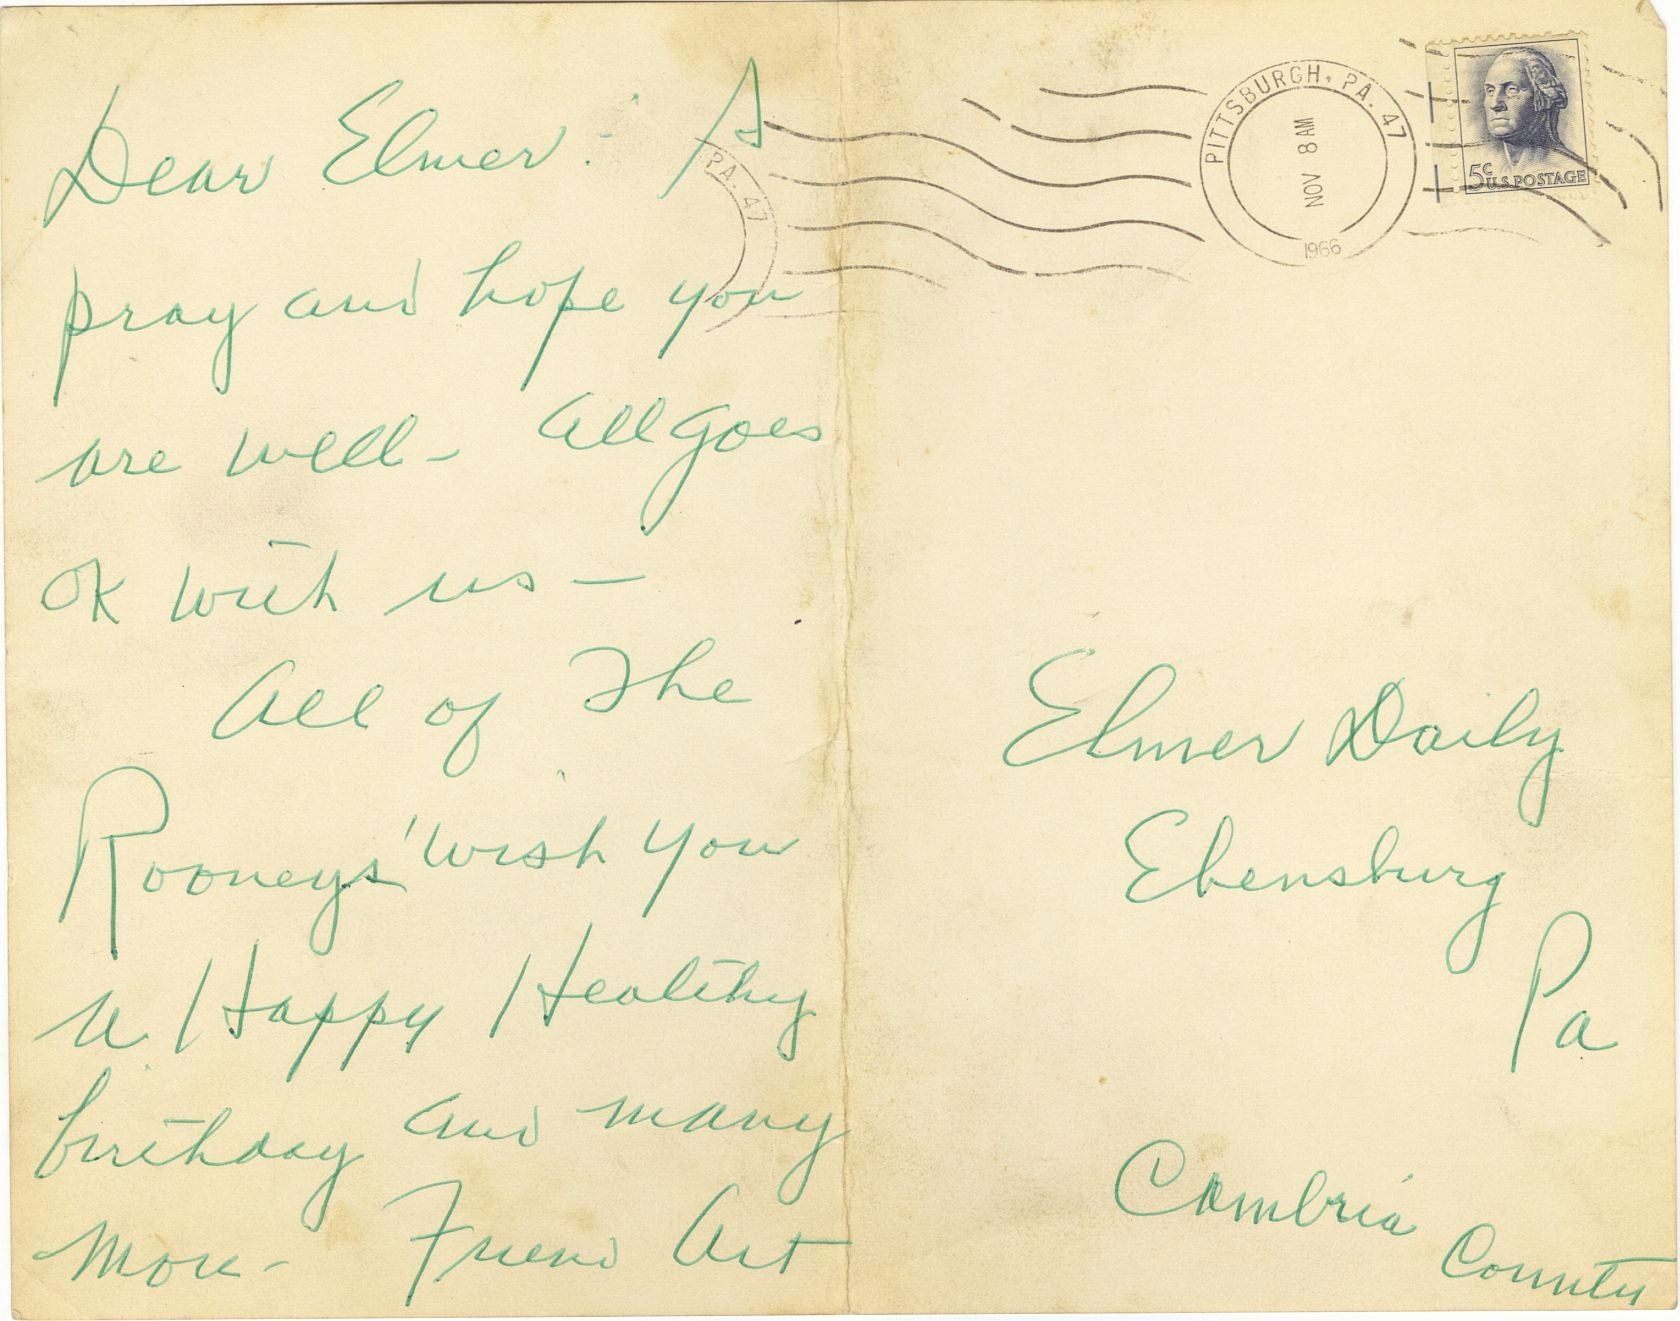 Dear Elmer: I
pray and hope you
are well - All goes
OK with us -
All of The
Rooneys' wish you
a Happy Healthy
birthday and many
more - Friend Art
PA. 47
PITTSBURGH, PA. 47
NOV 8 AM
1966
5¢ U.S. POSTAGE
Elmer Daily
Ebensburg
Pa
Cambria
County